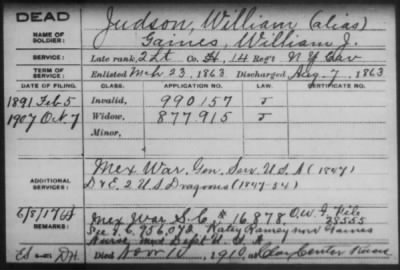 DEAD
NAME OF SOLDIER: Judson, William (alias)
Gaines, William J.
SERVICE: Late rank, 2 Lt Co. H, 14 Reg't N Y Cav
TERM OF SERVICE: Enlisted Mch 23, 1863 Discharged Aug. 7, 1863
DATE OF FILING. CLASS. APPLICATION NO. LAW. CERTIFICATE NO.
1891 Feb 5 Invalid, 990157 J
1907 Oct. 7 Widow, 877915 J
Minor,
ADDITIONAL SERVICES: Mex War. Gen. Serv. U.S.A (1847)
D & E. 2 U S Dragoons (1847-54)
REMARKS: Mex War S.C. # 16,878. O.W. I. File 28555
See I.C. 956,072 Katey Ramey now Gaines
Nurse, Med Dept U.S.A.
Died Nov 10, 1910, at Clay Center Kans